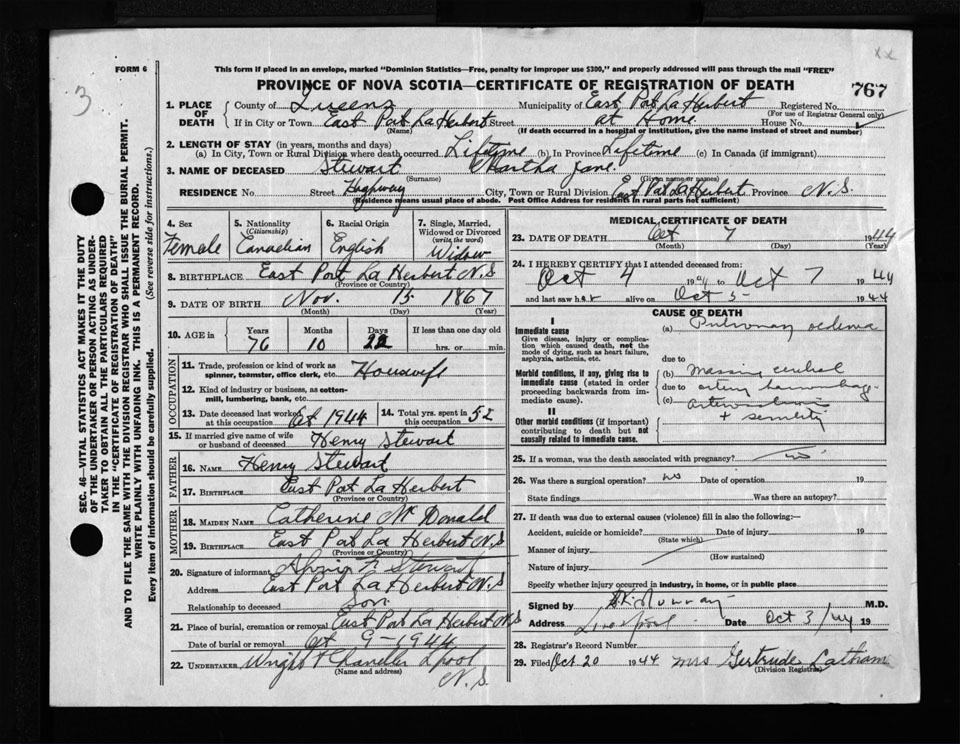 FORM 6
This form if placed in an envelope, marked "Dominion Statistics—Free, penalty for improper use $300," and properly addressed will pass through the mail "FREE"
3
PROVINCE OF NOVA SCOTIA—CERTIFICATE OF REGISTRATION OF DEATH
767
SEC. 46—VITAL STATISTICS ACT MAKES IT THE DUTY
OF THE UNDERTAKER OR PERSON ACTING AS UNDER-
TAKER TO OBTAIN ALL THE PARTICULARS REQUIRED
IN THE "CERTIFICATE OF REGISTRATION OF DEATH"
AND TO FILE THE SAME WITH THE DIVISION REGISTRAR WHO SHALL ISSUE THE BURIAL PERMIT.
WRITE PLAINLY WITH UNFADING INK. THIS IS A PERMANENT RECORD.
Every item of information should be carefully supplied. (See reverse side for instructions.)
1. PLACE OF DEATH
County of Queens Municipality of East Port La Herbert Registered No.
(For use of Registrar General only)
If in City or Town East Port La Herbert Street at Home House No.
(Name) (If death occurred in a hospital or institution, give the name instead of street and number)
2. LENGTH OF STAY (in years, months and days)
(a) In City, Town or Rural Division where death occurred Lifetime (b) In Province Lifetime (c) In Canada (if immigrant)
3. NAME OF DECEASED Stewart Martha Jane.
(Surname) (Given name or names)
RESIDENCE No. Street Highway City, Town or Rural Division East Port La Herbert Province N.S.
(Residence means usual place of abode. Post Office Address for residents in rural parts not sufficient)
4. Sex
Female
5. Nationality
(Citizenship)
Canadian
6. Racial Origin
English
7. Single, Married, Widowed or Divorced
(write the word)
Widow
8. BIRTHPLACE East Port La Herbert N.S
(Province or Country)
9. DATE OF BIRTH Nov. 15 1867
(Month) (Day) (Year)
10. AGE in Years Months Days If less than one day old
76 10 22 hrs. or min.
OCCUPATION
11. Trade, profession or kind of work as spinner, teamster, office clerk, etc. Housewife
12. Kind of industry or business, as cotton-mill, lumbering, bank, etc.
13. Date deceased last worked at this occupation Oct 1944 14. Total yrs. spent in this occupation 52
15. If married give name of wife or husband of deceased Henry Stewart
FATHER
16. NAME Henry Stewart
17. BIRTHPLACE East Port La Herbert
(Province or Country)
MOTHER
18. MAIDEN NAME Catherine McDonald
19. BIRTHPLACE East Port La Herbert N.S
(Province or Country)
20. Signature of informant Stewart
Address East Port La Herbert N.S
Relationship to deceased Son
21. Place of burial, cremation or removal East Port La Herbert N.S
Date of burial or removal Oct 9-1944
22. UNDERTAKER Wright & Chandler Lpool
(Name and address)
N.S.
MEDICAL CERTIFICATE OF DEATH
23. DATE OF DEATH Oct 7 1944
(Month) (Day) (Year)
24. I HEREBY CERTIFY that I attended deceased from:
Oct 4 1944 to Oct 7 1944
and last saw her alive on Oct 5 1944
CAUSE OF DEATH
I
Immediate cause
Give disease, injury or complication which caused death, not the mode of dying, such as heart failure, asphyxia, asthenia, etc.
(a) Pulmonary oedema
due to
Morbid conditions, if any, giving rise to immediate cause (stated in order proceeding backwards from immediate cause).
(b) Massive cerebral
due to artery hemorrhage
(c)
II
Other morbid conditions (if important) contributing to death but not causally related to immediate cause.
+ senility
25. If a woman, was the death associated with pregnancy? no
26. Was there a surgical operation? no Date of operation 19
State findings Was there an autopsy?
27. If death was due to external causes (violence) fill in also the following:—
Accident, suicide or homicide? Date of injury 19
(State which)
Manner of injury
(How sustained)
Nature of injury
Specify whether injury occurred in industry, in home, or in public place
Signed by Murray M.D.
Address Liverpool Date Oct 3/44 19
28. Registrar's Record Number
29. Filed Oct 20 1944 Mrs Gertrude Latham
(Division Registrar)